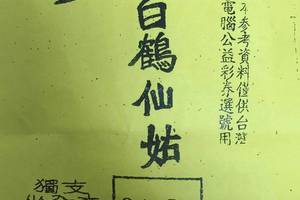 參考資料僅供台灣
電腦公益彩券選號用
白鶴仙姑
獨支